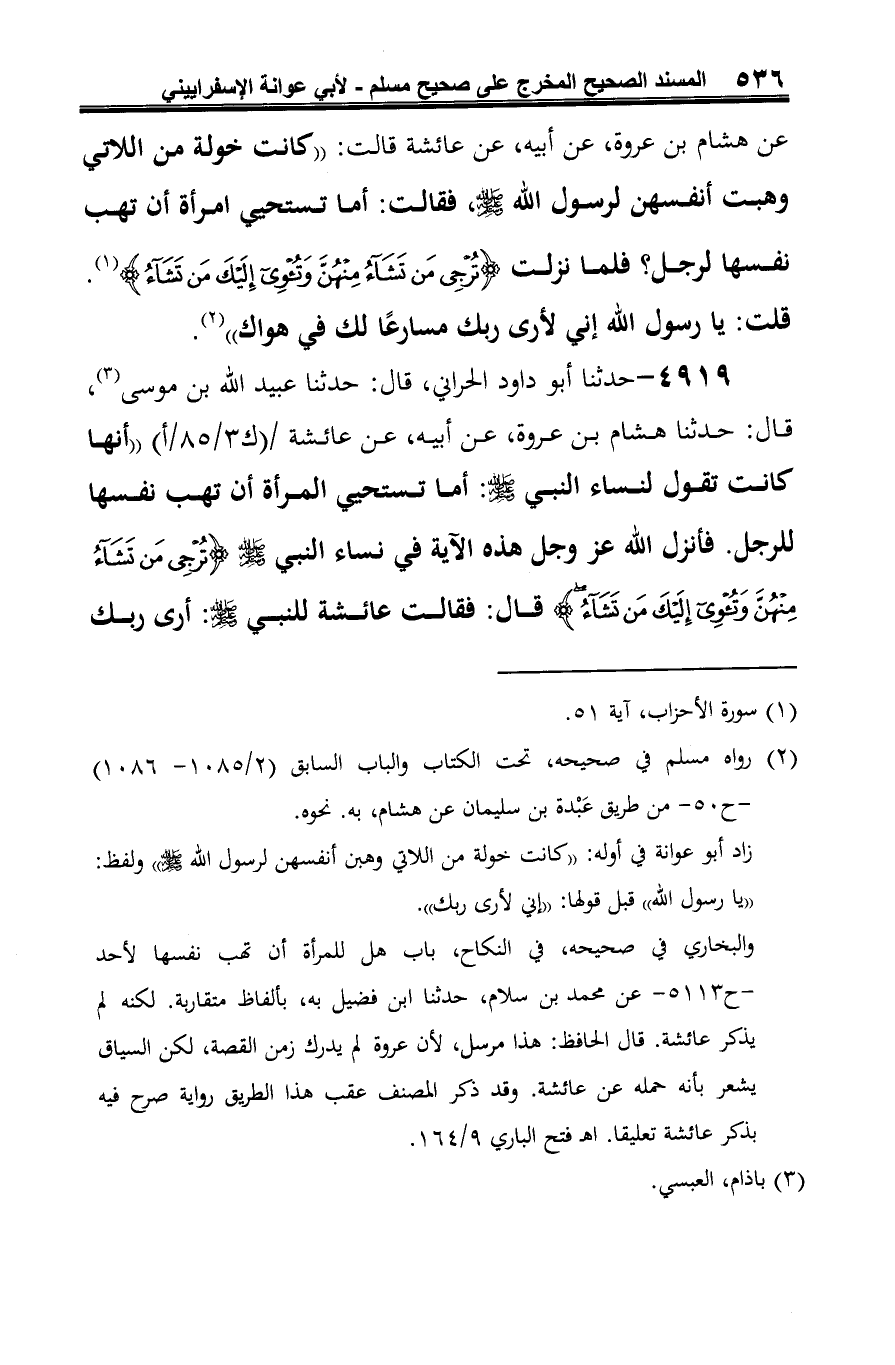 ٥٣٦ المسند الصحيح المخرج على صحيح مسلم - لأبي عوانة الإسفراييني
عن هشام بن عروة، عن أبيه، عن عائشة قالت: ((كانت خولة من اللاتي
وهبت أنفسهن لرسول الله ﷺ، فقالت: أما تستحيي امرأة أن تهب
نفسها لرجل؟ فلما نزلت ﴿تُرْجِى مَن تَشَآءُ مِنْهُنَّ وَتُـْٔوِىٓ إِلَيْكَ مَن تَشَآءُ﴾(١).
قلت: يا رسول الله إني لأرى ربك مسارعًا لك في هواك))(٢).
٤٩١٩-حدثنا أبو داود الحراني، قال: حدثنا عبيد الله بن موسى(٣)،
قال: حدثنا هشام بن عروة، عن أبيه، عن عائشة /(ك٨٥/٣/أ) ((أنها
كانت تقول لنساء النبي ﷺ: أما تستحيي المرأة أن تهب نفسها
للرجل. فأنزل الله عز وجل هذه الآية في نساء النبي ﷺ ﴿تُرْجِى مَن تَشَآءُ
مِنْهُنَّ وَتُـْٔوِىٓ إِلَيْكَ مَن تَشَآءُۖ﴾ قال: فقالت عائشة للنبي ﷺ: أرى ربك
(١) سورة الأحزاب، آية ٥١.
(٢) رواه مسلم في صحيحه، تحت الكتاب والباب السابق (١٠٨٥/٢- ١٠٨٦)
-ح٥٠- من طريق عَبْدة بن سليمان عن هشام، به. نحوه.
زاد أبو عوانة في أوله: ((كانت خولة من اللاتي وهبن أنفسهن لرسول الله ﷺ)) ولفظ:
((يا رسول الله)) قبل قولها: ((إني لأرى ربك)).
والبخاري في صحيحه، في النكاح، باب هل للمرأة أن تهب نفسها لأحد
-ح٥١١٣- عن محمد بن سلام، حدثنا ابن فضيل به، بألفاظ متقاربة. لكنه لم
يذكر عائشة. قال الحافظ: هذا مرسل، لأن عروة لم يدرك زمن القصة، لكن السياق
يشعر بأنه حمله عن عائشة. وقد ذكر المصنف عقب هذا الطريق رواية صرح فيه
بذكر عائشة تعليقا. اهـ فتح الباري ١٦٤/٩.
(٣) باذام، العبسي.